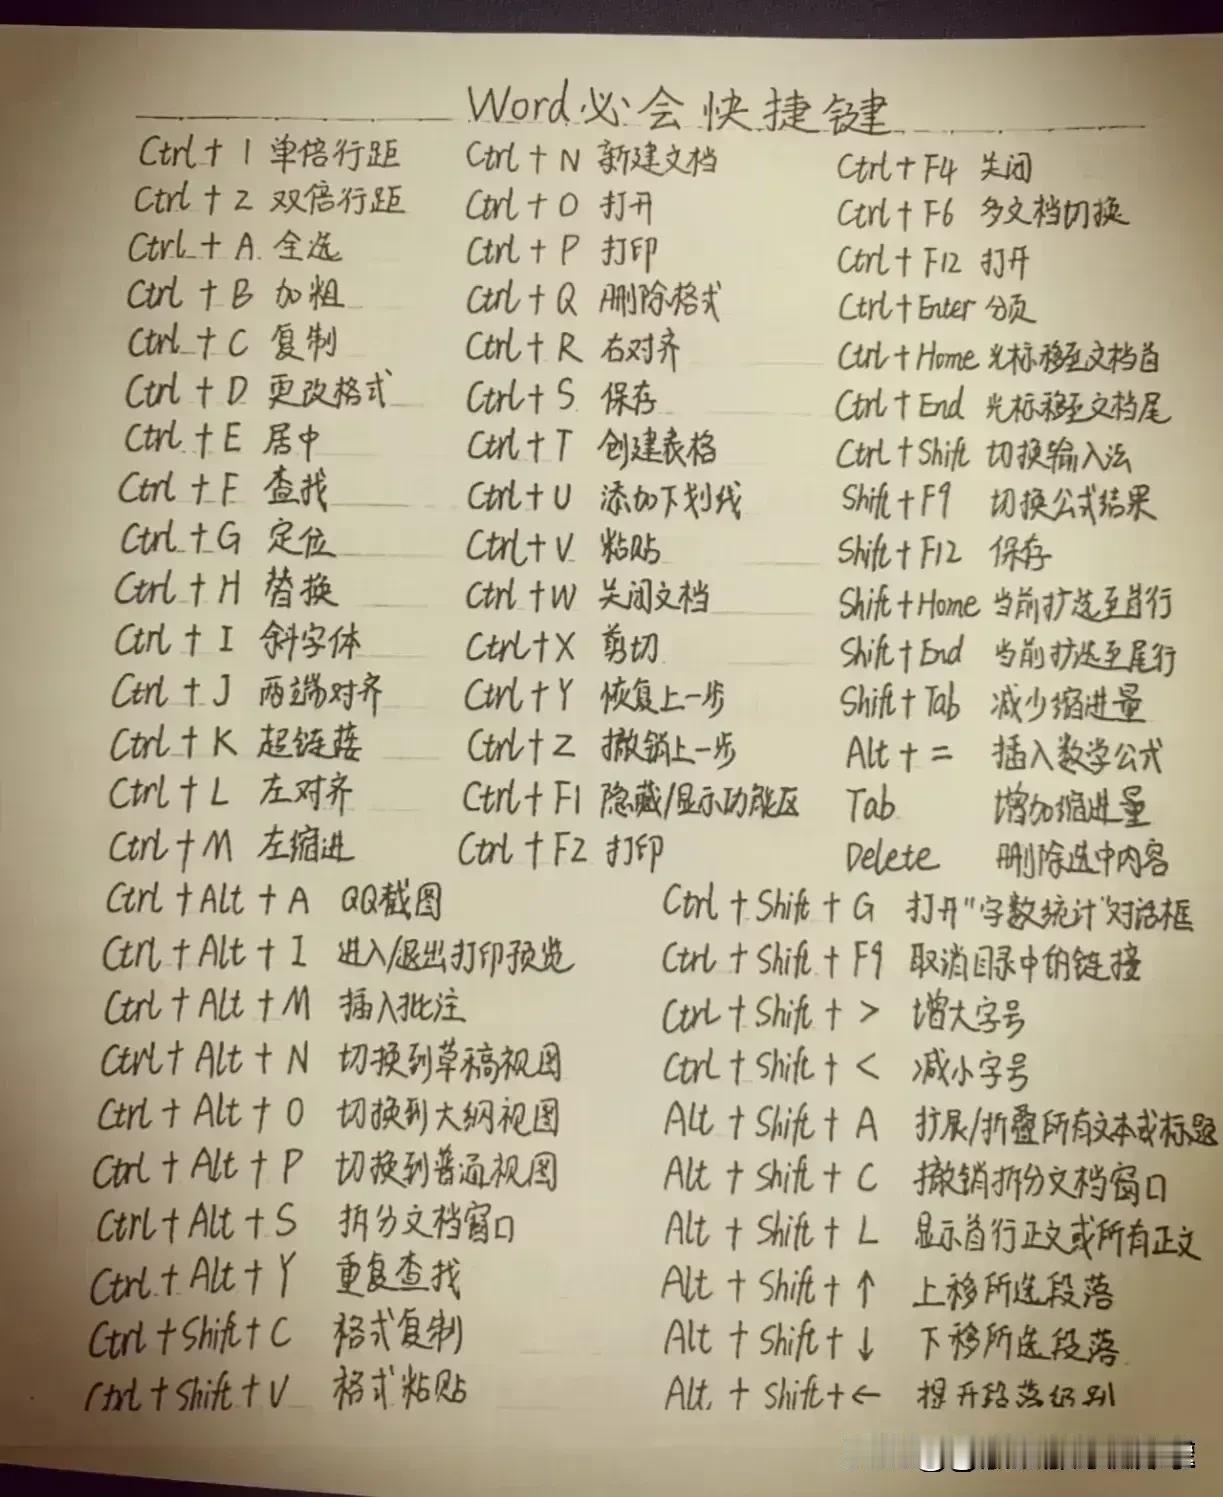 Word必会快捷键
Ctrl + 1 单倍行距
Ctrl + 2 双倍行距
Ctrl + A 全选
Ctrl + B 加粗
Ctrl + C 复制
Ctrl + D 更改格式
Ctrl + E 居中
Ctrl + F 查找
Ctrl + G 定位
Ctrl + H 替换
Ctrl + I 斜字体
Ctrl + J 两端对齐
Ctrl + K 超链接
Ctrl + L 左对齐
Ctrl + M 左缩进
Ctrl + N 新建文档
Ctrl + O 打开
Ctrl + P 打印
Ctrl + Q 删除格式
Ctrl + R 右对齐
Ctrl + S 保存
Ctrl + T 创建表格
Ctrl + U 添加下划线
Ctrl + V 粘贴
Ctrl + W 关闭文档
Ctrl + X 剪切
Ctrl + Y 恢复上一步
Ctrl + Z 撤销上一步
Ctrl + F1 隐藏/显示功能区
Ctrl + F2 打印
Ctrl + F4 关闭
Ctrl + F6 多文档切换
Ctrl + F12 打开
Ctrl + Enter 分页
Ctrl + Home 光标移至文档首
Ctrl + End 光标移至文档尾
Ctrl + Shift 切换输入法
Shift + F9 切换公式结果
Shift + F12 保存
Shift + Home 当前扩选至首行
Shift + End 当前扩选至尾行
Shift + Tab 减少缩进量
Alt + = 插入数学公式
Tab 增加缩进量
Delete 删除选中内容
Ctrl + Alt + A QQ截图
Ctrl + Alt + I 进入/退出打印预览
Ctrl + Alt + M 插入批注
Ctrl + Alt + N 切换到草稿视图
Ctrl + Alt + O 切换到大纲视图
Ctrl + Alt + P 切换到普通视图
Ctrl + Alt + S 拆分文档窗口
Ctrl + Alt + Y 重复查找
Ctrl + Shift + C 格式复制
Ctrl + Shift + V 格式粘贴
Ctrl + Shift + G 打开"字数统计"对话框
Ctrl + Shift + F9 取消目录中的链接
Ctrl + Shift + > 增大字号
Ctrl + Shift + < 减小字号
Alt + Shift + A 扩展/折叠所有文本或标题
Alt + Shift + C 撤销拆分文档窗口
Alt + Shift + L 显示首行正文或所有正文
Alt + Shift + ↑ 上移所选段落
Alt + Shift + ↓ 下移所选段落
Alt + Shift + ← 提升段落级别